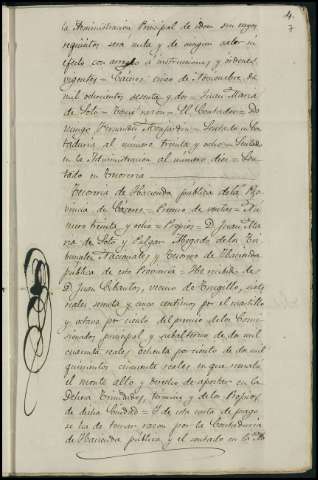 4.
7
la Administracion Principal de idem sin cuyos
requisitos será nula y de ningun valor ni
efecto con arreglo á instrucciones y ordenes
vigentes = Cáceres cinco de Noviembre de
mil ochocientos sesenta y dos = Juan Maria
de Soto = Tomé razon = El Contador = Do
mingo Fernandez = Sentado en Con
taduria al numero treinta y ocho = Sentado
en la Administracion al numero dies = Sen
tado en Tesoreria
Tesoreria de Hacienda publica de la Pro
vincia de Cáceres = Premio de ventas = Nu
mero treinta y ocho = Propios = D. Juan Ma
ria de Soto y Pulgar Abogado de los Tri
bunales Nacionales y Tesorero de Hacienda
publica de esta Provincia = He recibido de
D. Juan vecino de Trugillo, siete
reales setenta y cinco centimos por el
y octavo por ciento del premio de los Comi
sionados principal y subalterno de dos mil
cuarenta reales ochenta por ciento de dos mil
quinientos cincuenta reales en que remató
el monte alto y derecho de apostar en la
Dehesa termino y de los Propios
de dicha Ciudad = Y de esta carta de pago
se ha de tomar razon por la Contaduria
de Hacienda publica, y el sentado en la